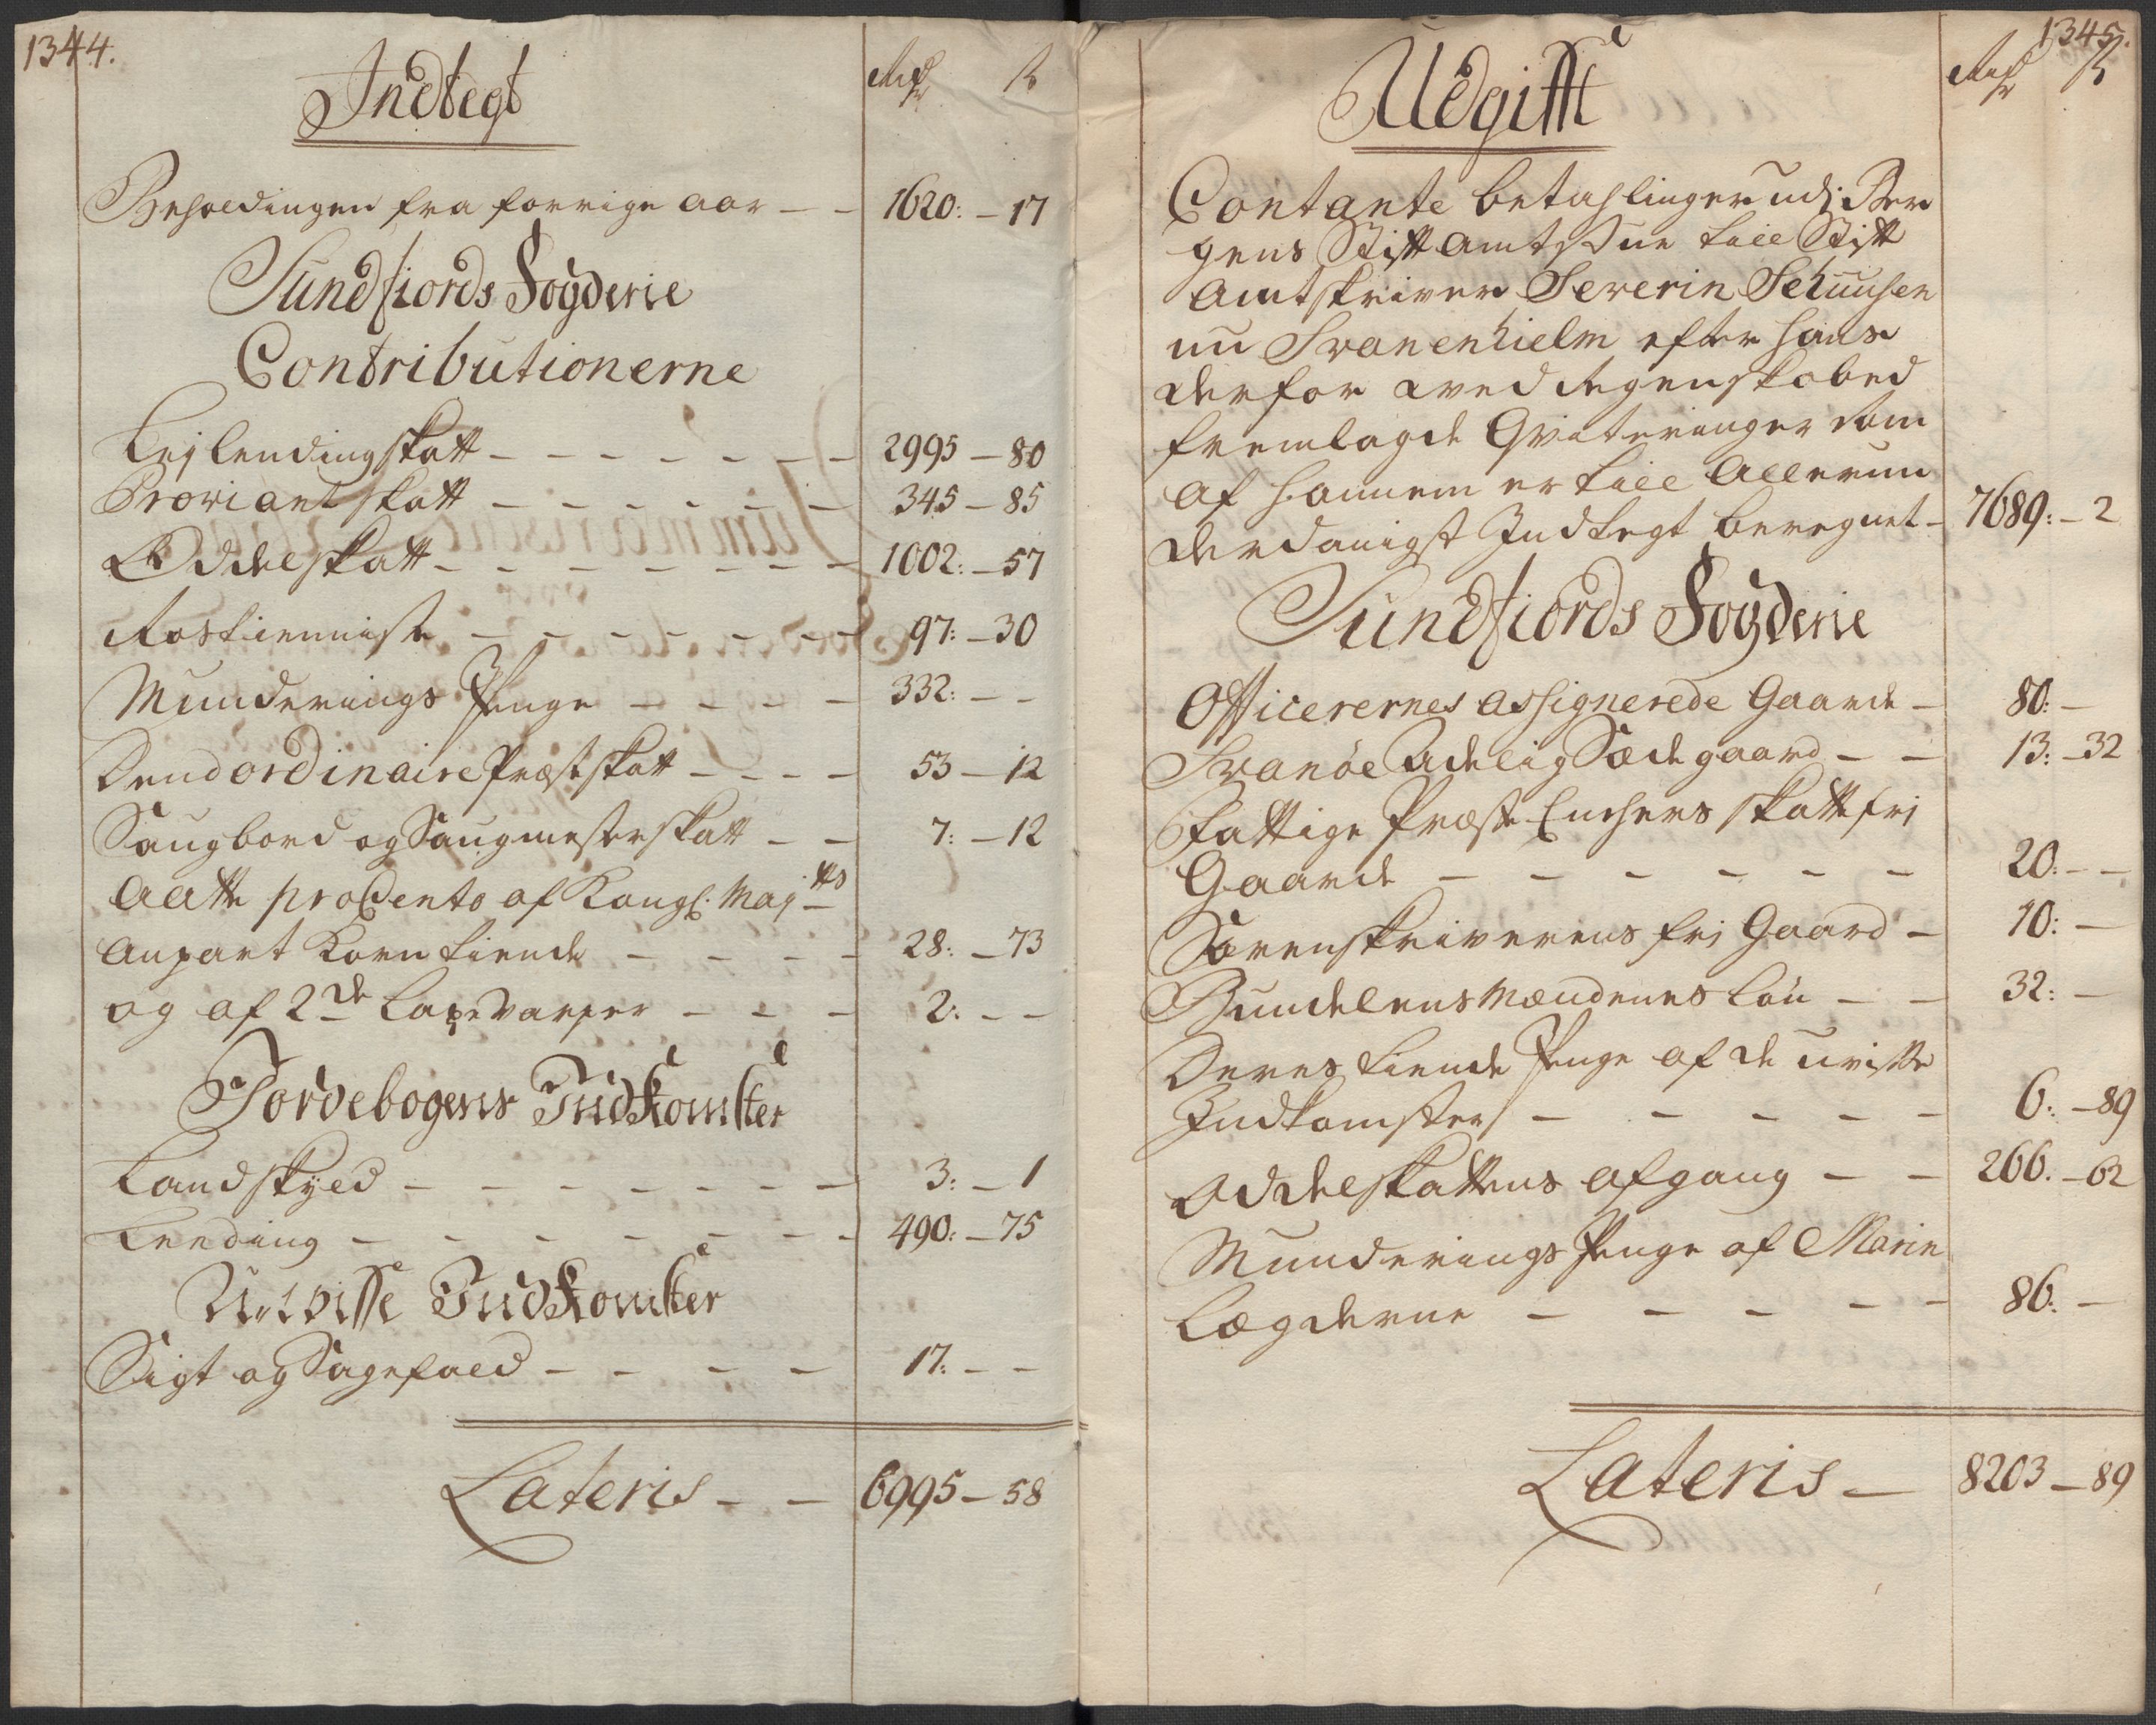 1344.
Indtegt
Rdr ß
Beholdingen fra forrige aar - - 1620: - 17
Sundfiords Fogderie
Contributionerne
Leylendingskatt - - - - - - - 2995 - 80
Proviantskatt - - - - - - 345 - 85
Oddelskatt - - - - - - - 1002: - 57
Rostienniste - - - - - - 97: - 30
Munderings Penge - - - - 332: - -
Dend ordinaire Præsteskatt - - - - 53 - 12
Saugbord og Saugmesterskatt - - 7: - 12
Aatte pro Cento af Kongl: Maytts
Anpart Korn tiende - - - - 28: - 73
og af 2de Laxevarper - - - 2: - -
Jordebogens Indkomster
Landskyld - - - - - - - 3: - 1
Leeding - - - - - - - 490: - 75
U-visse Indkomster
Sigt og Sagefald - - - - 17: - -
Lateris - - 6995 - 58
1345.
Udgifft
Rdr ß
Contante betahlinger udj Ber
gens Stiftamtstue till Stift
Amtskriver Severin Sehuusen
nu Svanenhielm efter hans
derfor ved Regenskabed
fremlagde Qviteringer som
af hannem er till Allerun
derdanigst Indtegt beregnet - 7689: - 2
Sundfiords Fogderie
Officerernes assignerede Gaarde - 80: -
Svanöe Adelig Sædegaard - - 13: - 32
Fattige Præste Enchers skattefrj
Gaarde - - - - - - 20: - -
Sorenskriverens frj Gaard - 10: -
Bundelensmændenes Löu - - 32: -
Deres tiende Penge af de uvisse
Indkomster - - - - - 6: - 89
Oddelskattens afgang - - 266. - 62
Munderings Penge af Marin
Lægderne - - - - - 86: -
Lateris - 8203 - 89